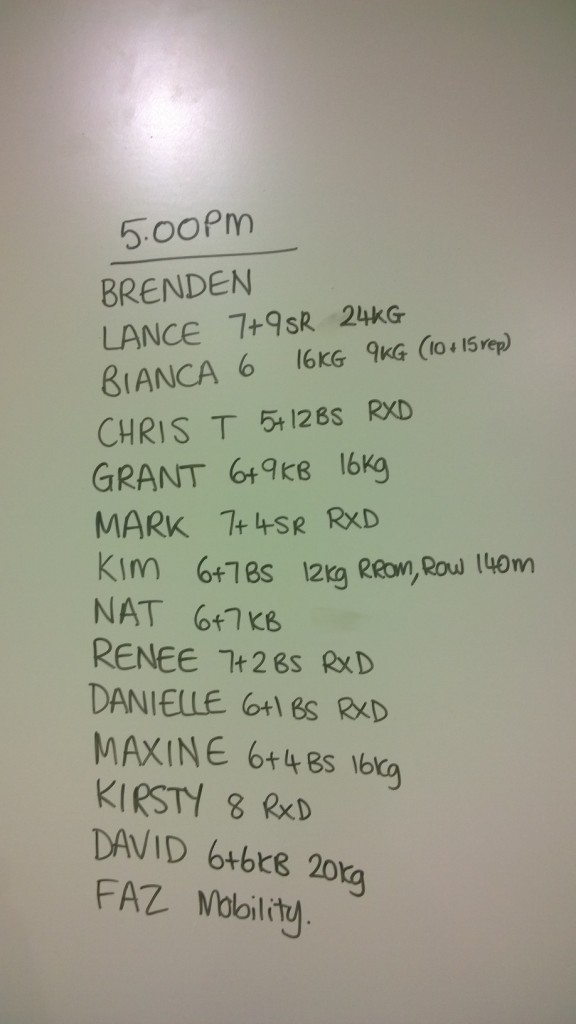 5.00PM
BRENDEN
LANCE 7+9SR 24KG
BIANCA 6 16KG 9KG (10+15rep)
CHRIS T 5+12BS RXD
GRANT 6+9KB 16Kg
MARK 7+4SR RXD
KIM 6+7BS 12kg RROM, ROW 140m
NAT 6+7KB
RENEE 7+2BS RXD
DANIELLE 6+1BS RXD
MAXINE 6+4BS 16kg
KIRSTY 8 RXD
DAVID 6+6KB 20kg
FAZ Mobility.